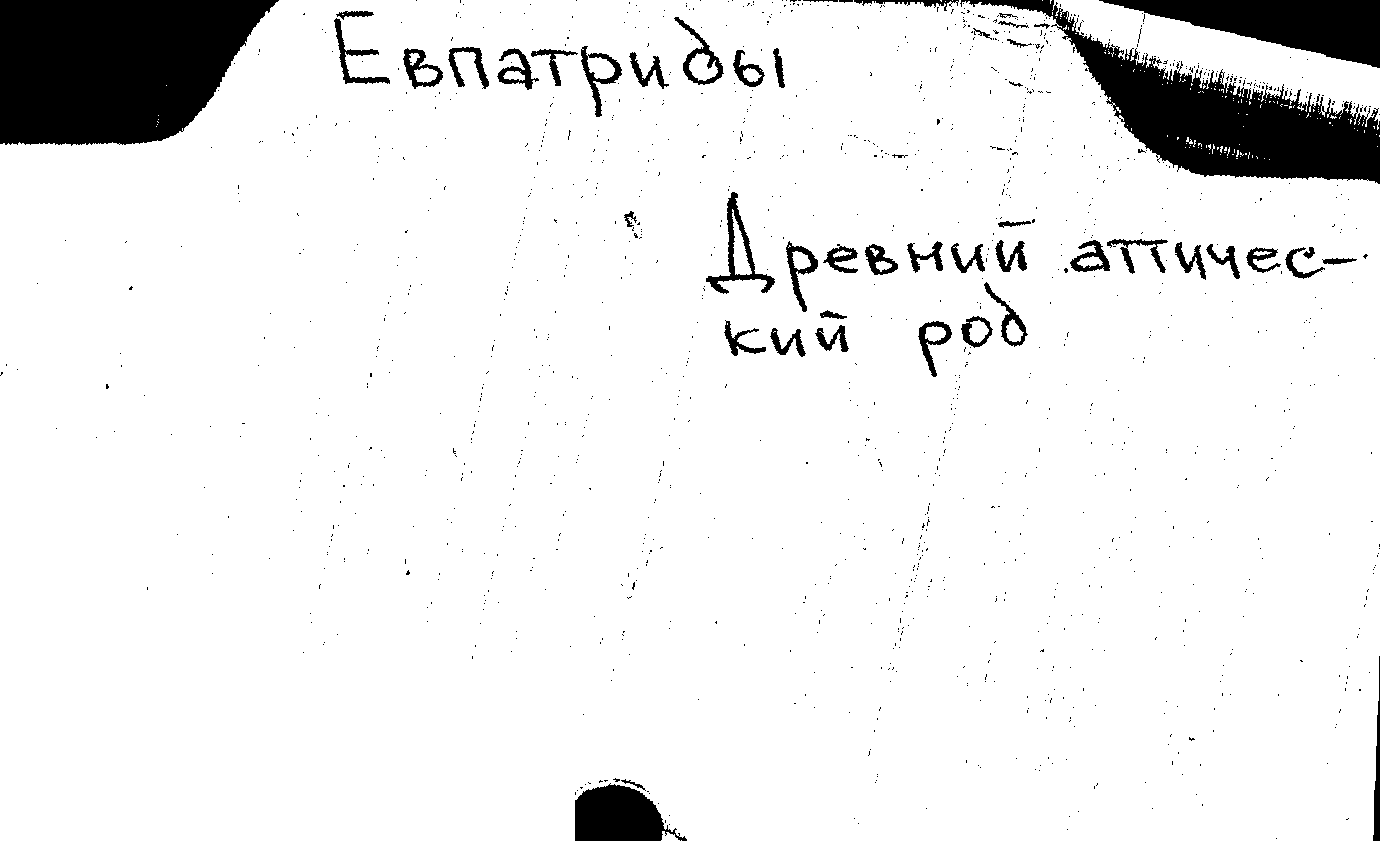 Евпатриды
Древний аттичес-
кий род